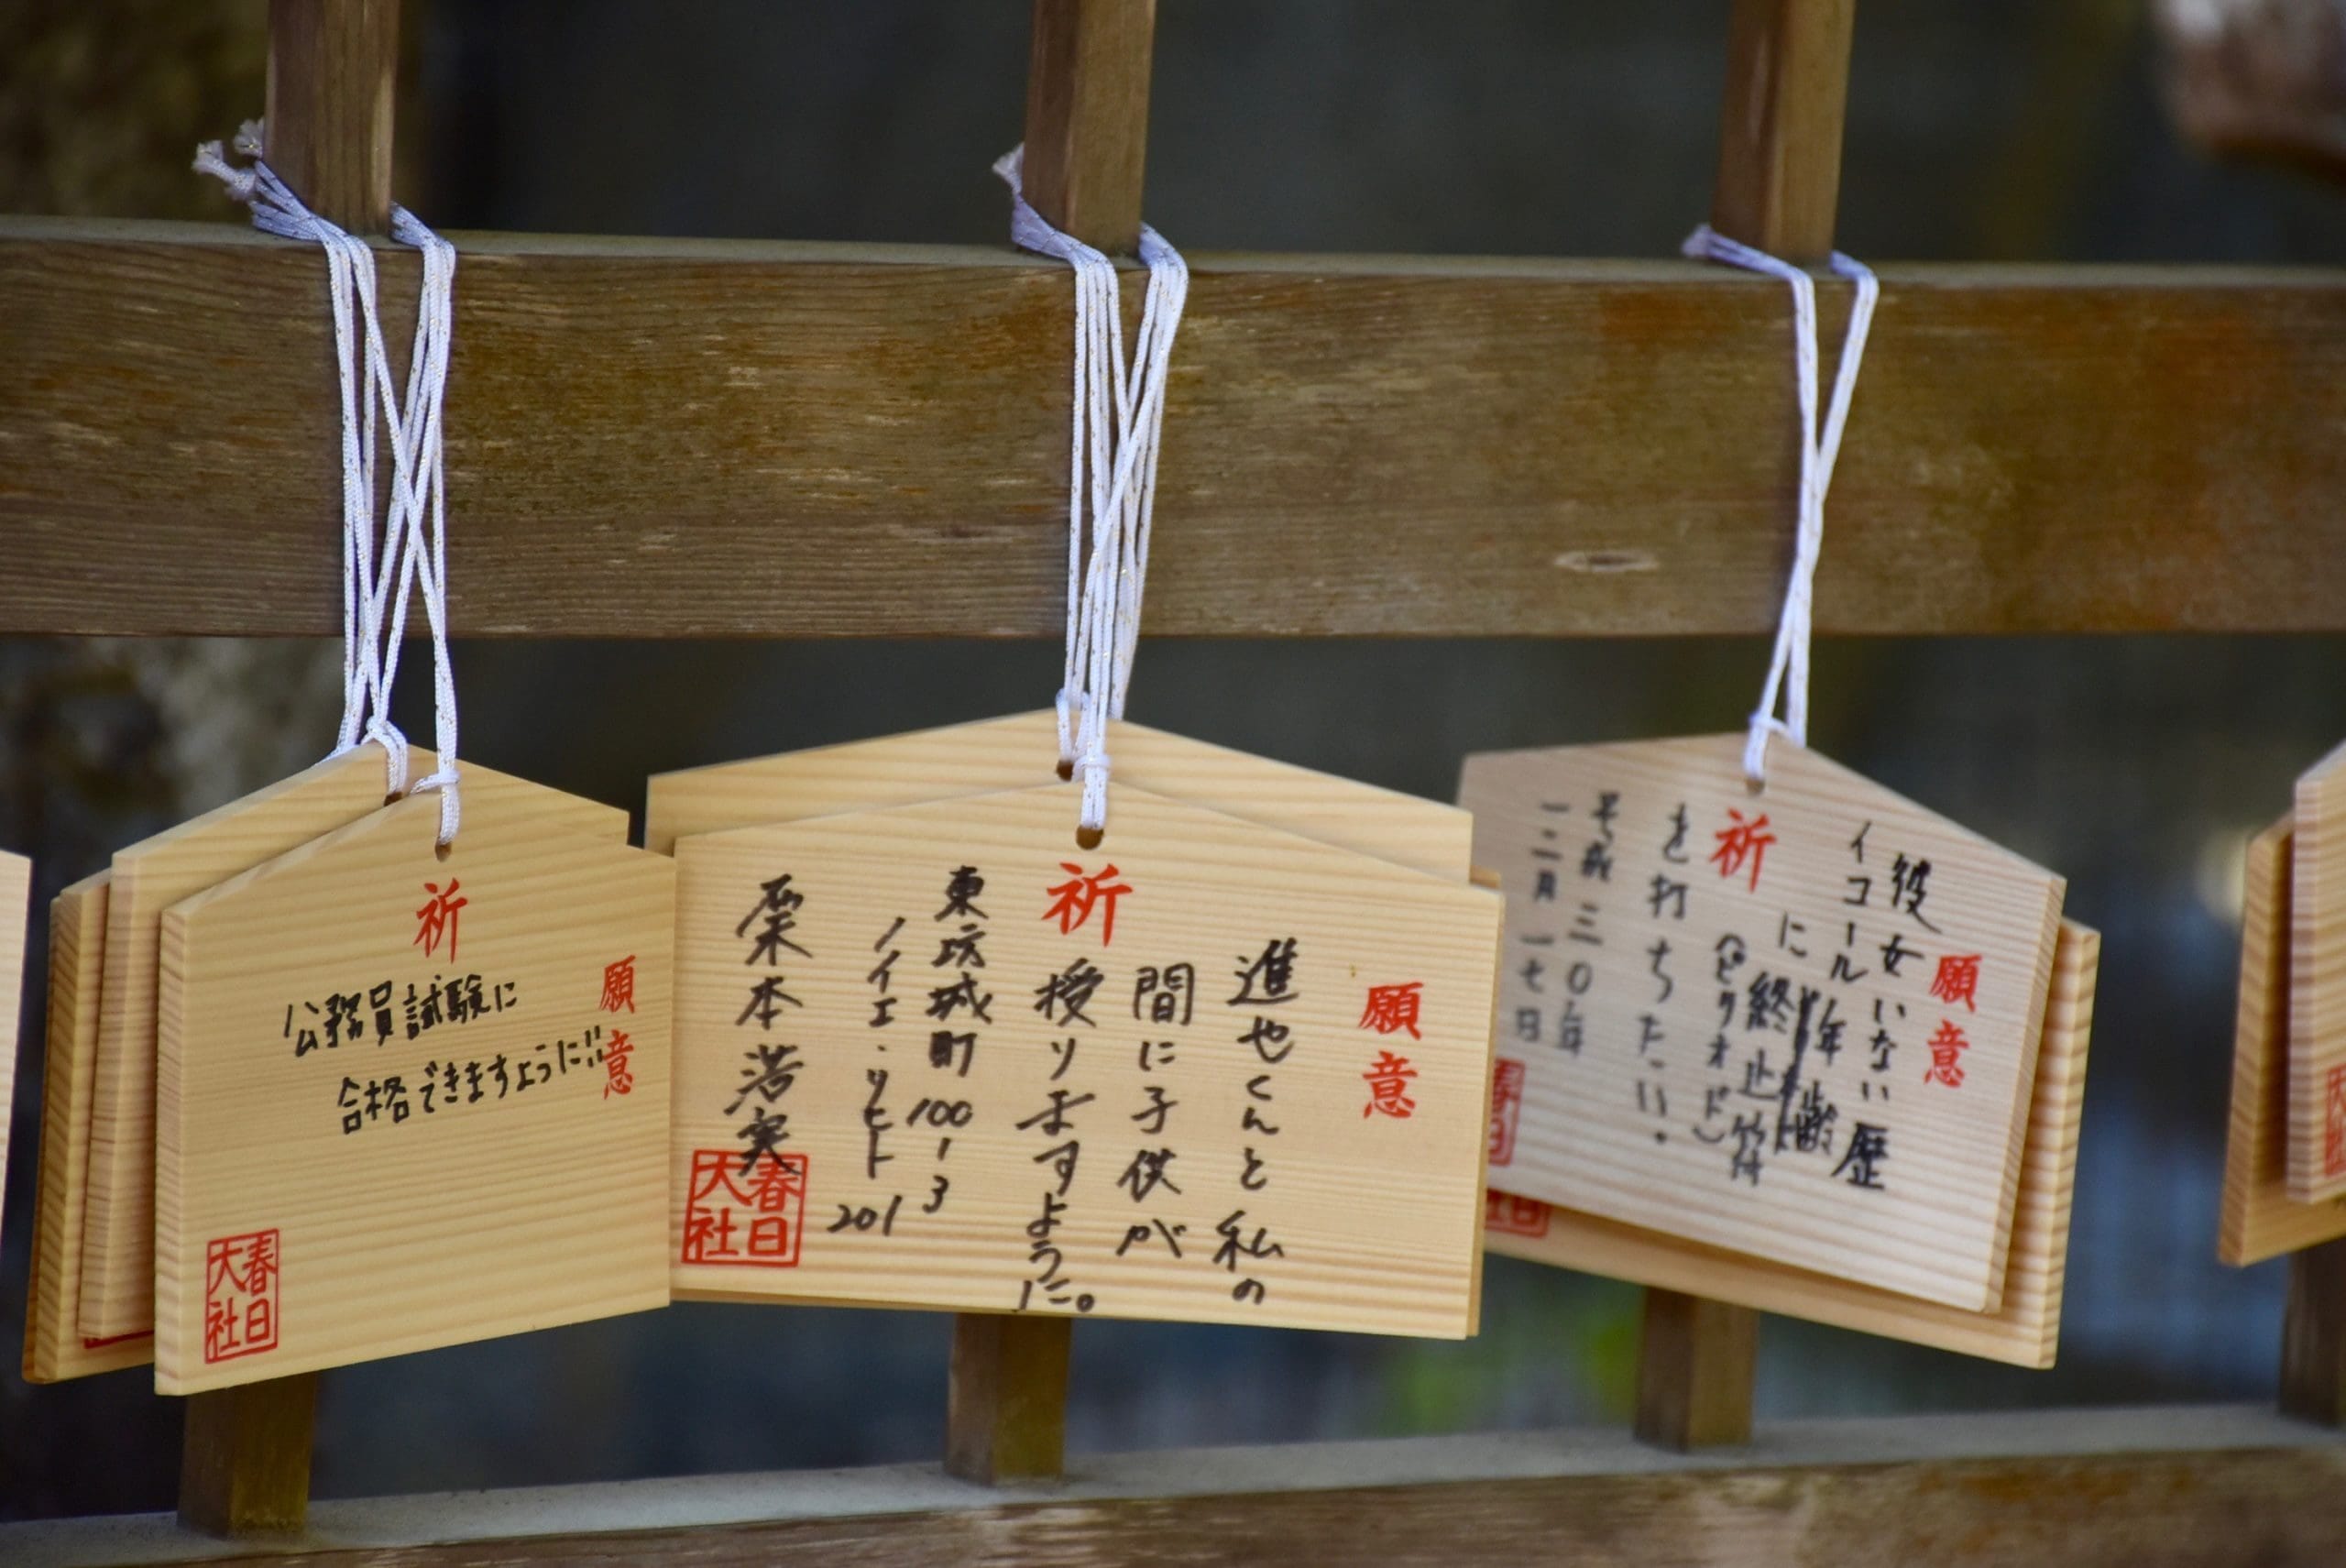 祈
願意
公務員試験に
合格できますように!!!
春日
大社
祈
願意
進也くんと私の
間に子供が
授りますように。
東坊城町100-3
ノイエ・リヒト201
栗本
春日
大社
祈
願意
彼女いない歴
イコール年齢
に終止符
(ピリオド)
を打ちたい.
平成三〇年
一二月一七日
春日